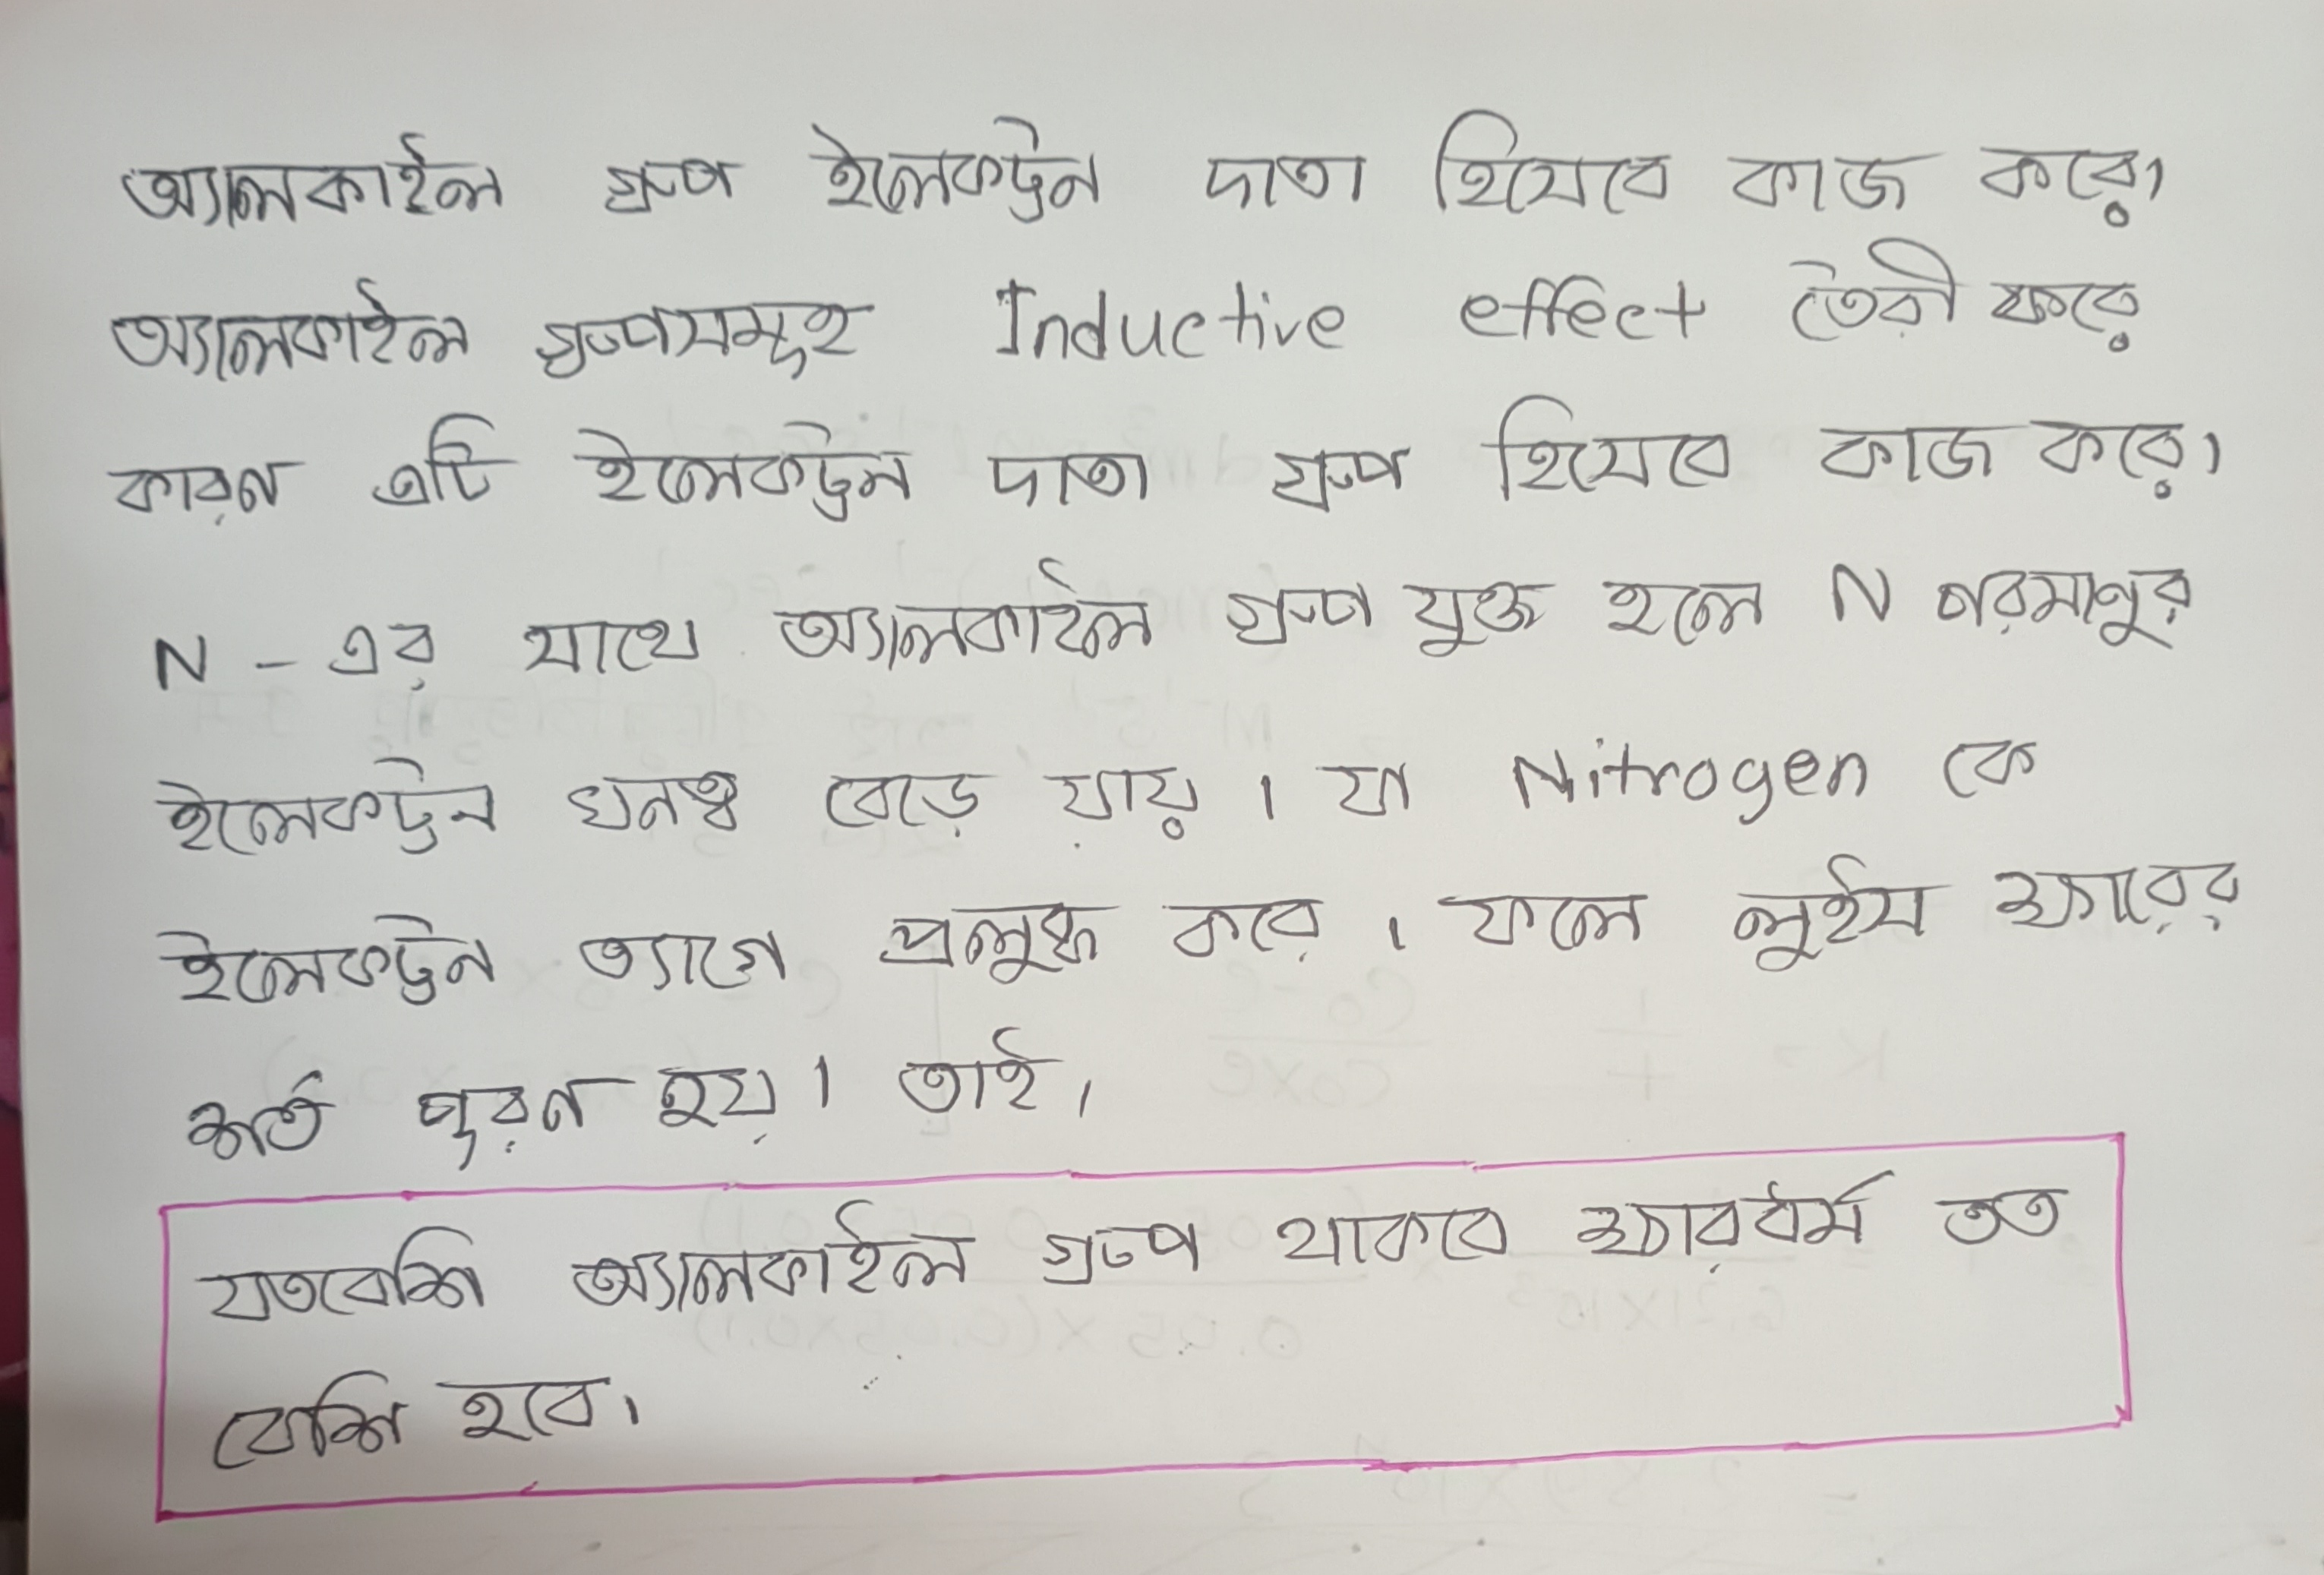 অ্যালকাইল গ্রুপ ইলেকট্রন দাতা হিসেবে কাজ করে।
অ্যালকাইল গ্রুপসমূহ Inductive effect তৈরী করে
কারণ এটি ইলেকট্রন দাতা গ্রুপ হিসেবে কাজ করে।
N - এর সাথে অ্যালকাইল গ্রুপ যুক্ত হলে N পরমাণুর
ইলেকট্রন ঘনত্ব বেড়ে যায়। যা Nitrogen কে
ইলেকট্রন ত্যাগে প্রলুব্ধ করে। ফলে লুইস ক্ষারের
শর্ত পূরণ হয়। তাই।
যতবেশি অ্যালকাইল গ্রুপ থাকবে ক্ষারধর্ম তত
বেশি হবে।